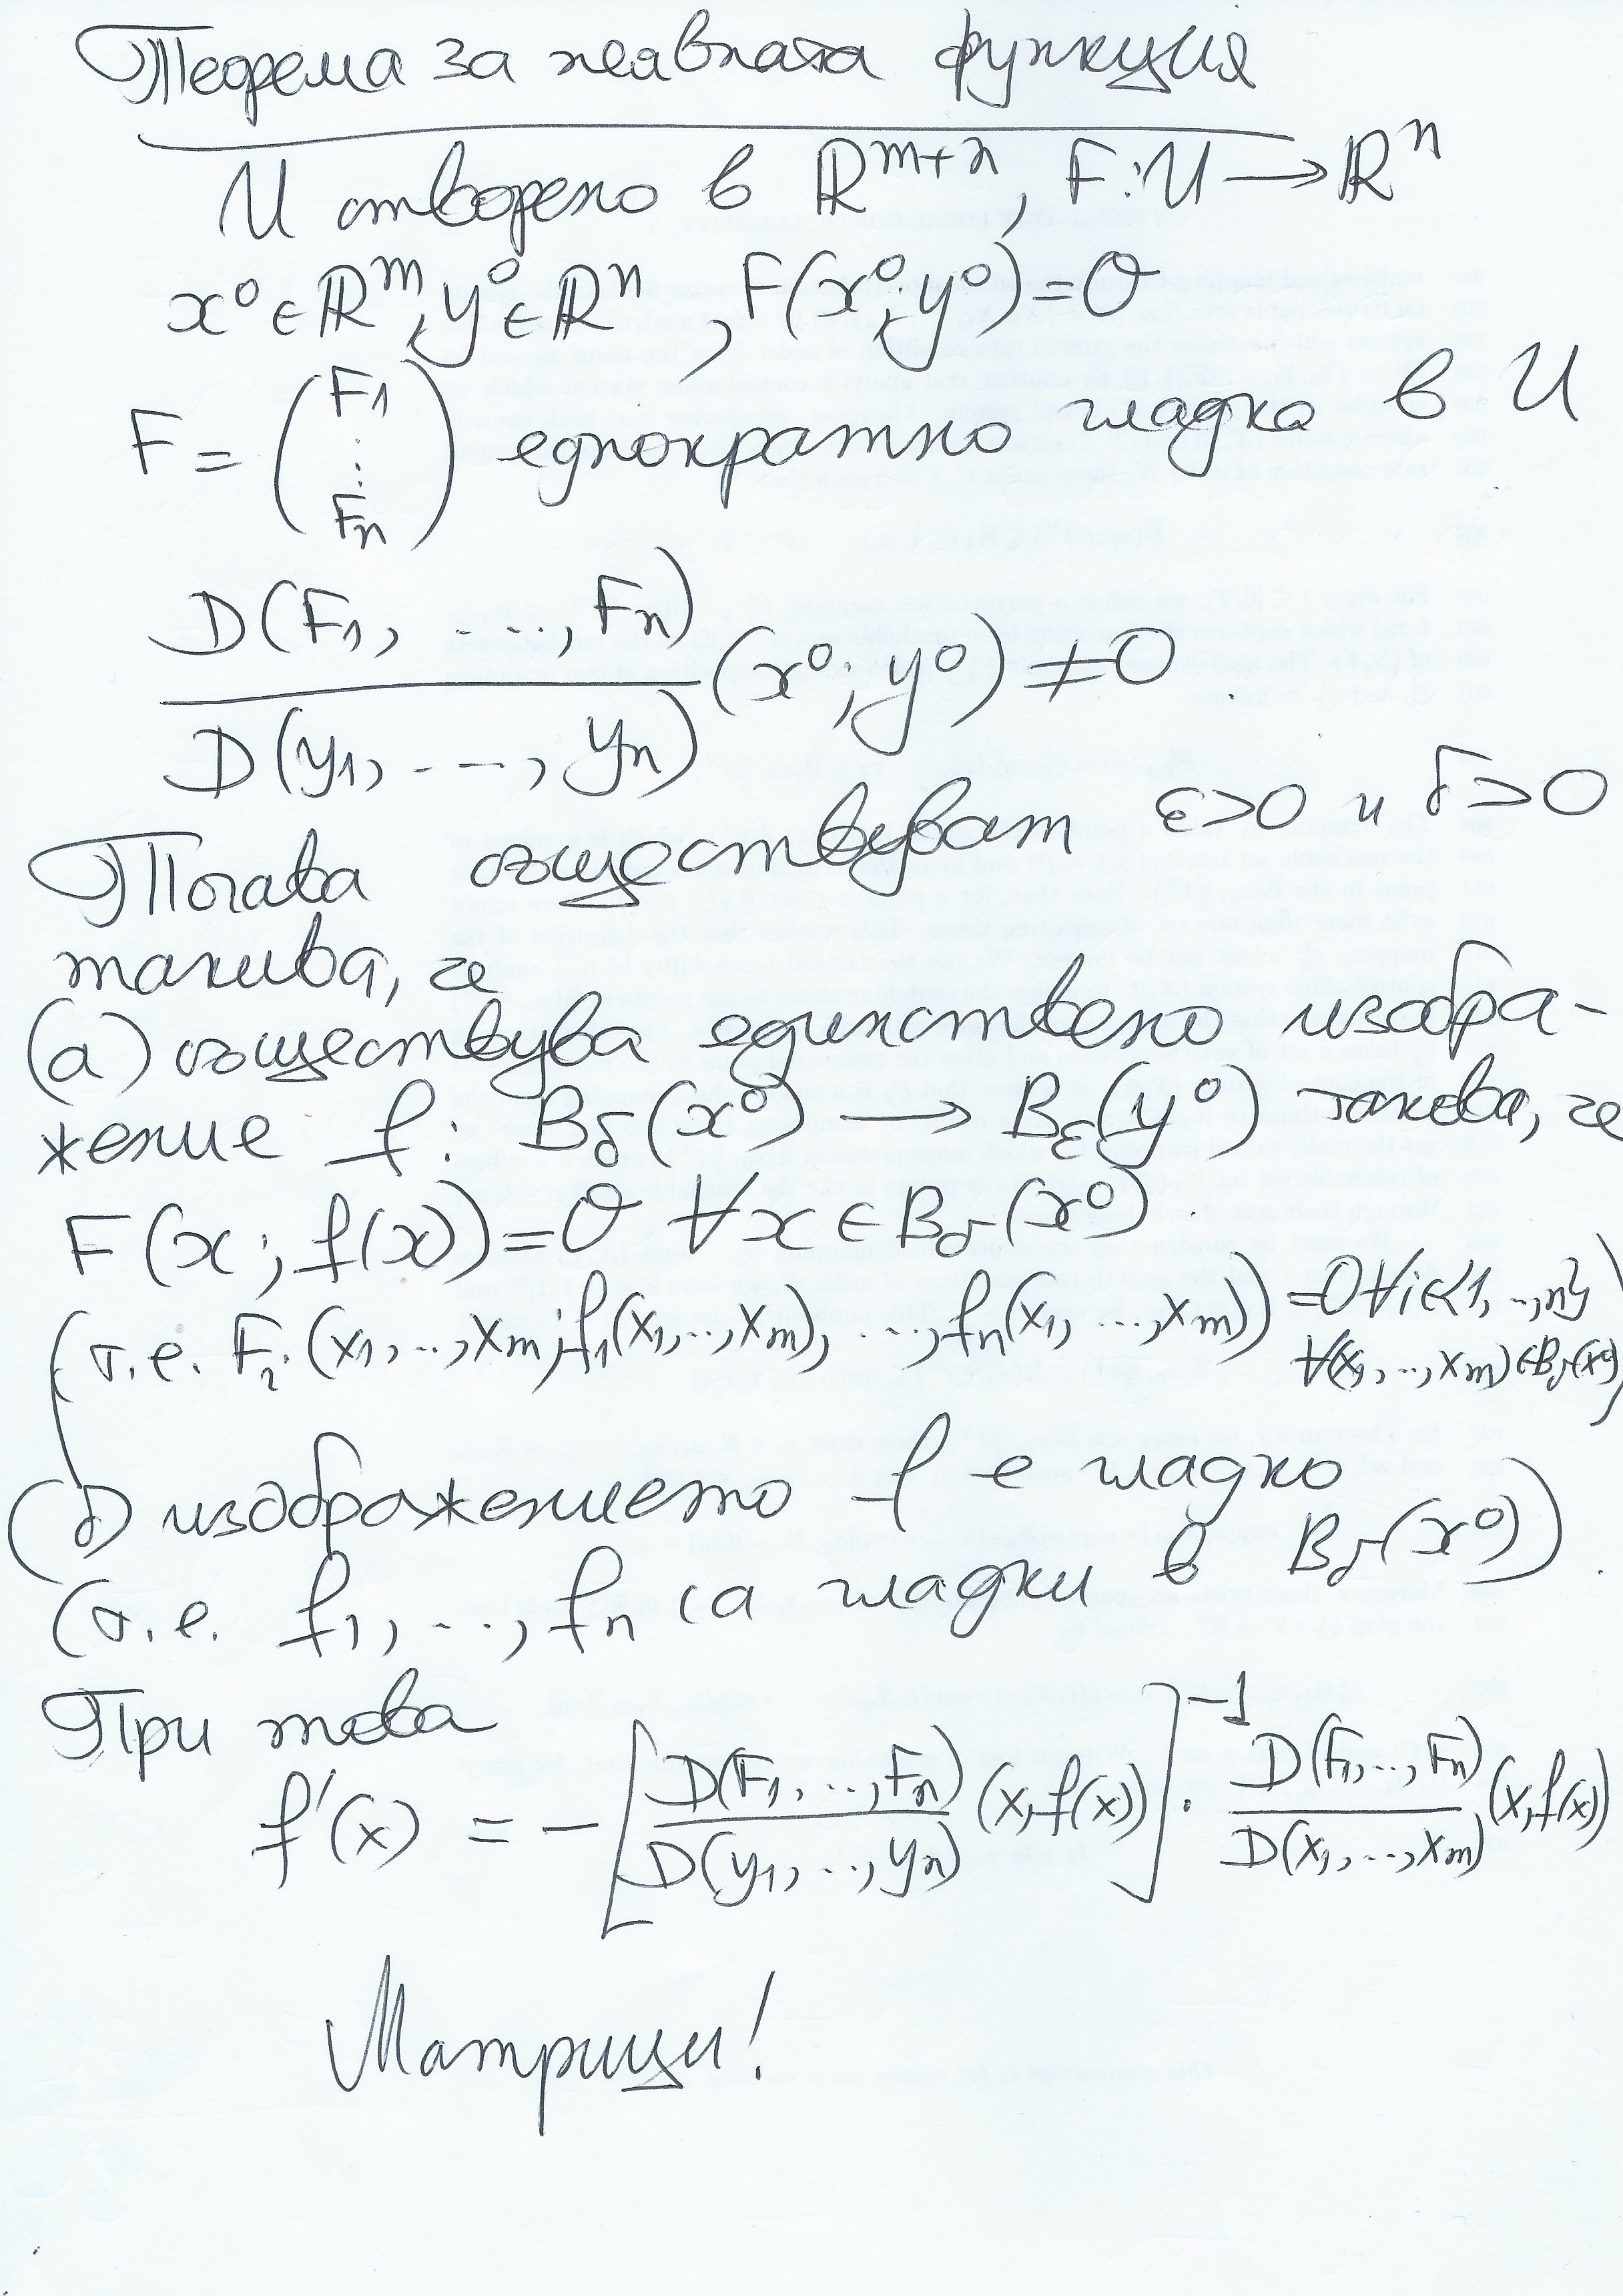 Теорема за неявната функция
U отворено в ℝ^{m+n}, F: U → ℝ^n
x⁰ ∈ ℝ^m, y⁰ ∈ ℝ^n, F(x⁰; y⁰) = 0
F = (F₁ ⋮ Fₙ) еднократно гладко в U
D(F₁, ..., Fₙ)/D(y₁, ..., yₙ) (x⁰; y⁰) ≠ 0.
Тогава съществуват ε>0 и δ>0
такива, че
(а) съществува единствено изобра-
жение f: B_δ(x⁰) → B_ε(y⁰) такова, че
F(x; f(x)) = 0 ∀x ∈ B_δ(x⁰).
(т.е. F_i(x₁, .., x_m; f₁(x₁, .., x_m), ..., fₙ(x₁, ..., x_m)) = 0 ∀i∈{1, .., n}
∀(x₁, .., x_m) ∈ B_δ(x⁰))
(б) изображението f е гладко
(т.е. f₁, ..., fₙ са гладки в B_δ(x⁰)).
При това
f'(x) = −[D(F₁, .., Fₙ)/D(y₁, .., yₙ) (x, f(x))]⁻¹ · D(F₁, .., Fₙ)/D(x₁, .., x_m) (x, f(x))
Матрици!